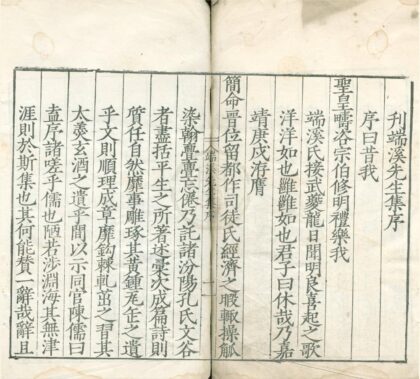 刋端溪先生集序
序曰昔我
聖皇疇洛宗伯修明禮樂我
端溪氏接武夔龍日聞明良喜起之歌
洋洋如也雝雝如也君子曰休哉乃嘉
靖庚戌洊膺
簡命晉位留都作司徒氏經濟之暇輙操觚
端溪先生集序
染翰亹亹忘倦乃託諸汾陽孔氏文谷
者盡括平生之所著述彚次成篇詩則
質任自然靡事雕琢其黃鍾大呂之遺
乎文則順理成章靡鈎棘軋茁之習其
太羮玄酒之遺乎間以示同官陳儒曰
盍序諸嗟乎儒也陋若涉淵海其無津
涯則於斯集也其何能贊一辭哉辭且